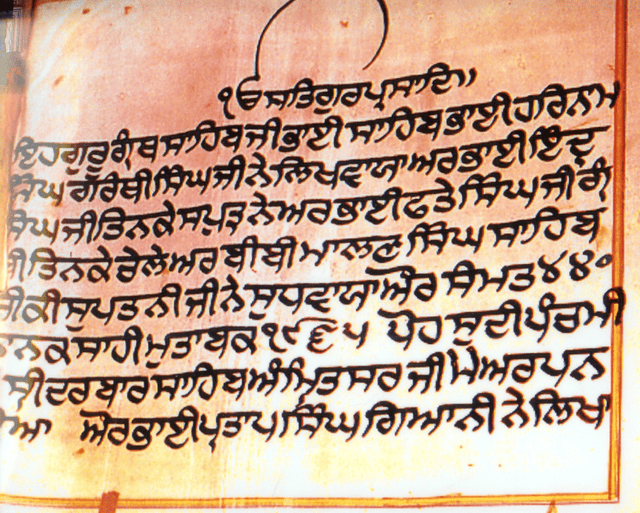 ੴ ਸਤਿਗੁਰਪ੍ਰਸਾਦਿ॥
ਇਹ ਗੁਰੂ ਗ੍ਰੰਥ ਸਾਹਿਬ ਜੀ ਭਾਈ ਸਾਹਿਬ ਭਾਈ ਹਰਿਨਾਮ
ਸਿੰਘ ਗਰੰਥੀ ਸਿੰਘ ਜੀ ਨੇ ਲਿਖਵਾਯਾ ਅਰ ਭਾਈ ਇੰਦ੍ਰ
ਸਿੰਘ ਜੀ ਤਿਨਕੇ ਸਪੁਤ੍ਰ ਨੇ ਅਰ ਭਾਈ ਫਤੇ ਸਿੰਘ ਜੀ ਗ੍ਰੰ
ਜੀ ਤਿਨਕੇ ਚੇਲੇ ਅਰ ਬੀਬੀ ਮਾਲਣ ਸਿੰਘ ਸਾਹਿਬ
ਜੀ ਕੀ ਸੁਪਤਨੀ ਜੀ ਨੇ ਸੁਧਵਾਯਾ ਔਰ ਸੰਮਤ ੪੪੦
ਨਾਨਕ ਸਾਹੀ ਮੁਤਾਬਕ ੧੯੬੫ ਪੋਹ ਸੁਦੀ ਪੰਚਮੀ
ਸ੍ਰੀ ਦਰਬਾਰ ਸਾਹਿਬ ਅੰਮ੍ਰਿਤਸਰ ਜੀ ਮੇਂ ਅਰਪਨ
ਔਰ ਭਾਈ ਪ੍ਰਤਾਪ ਸਿੰਘ ਗਿਆਨੀ ਨੇ ਲਿਖਾ